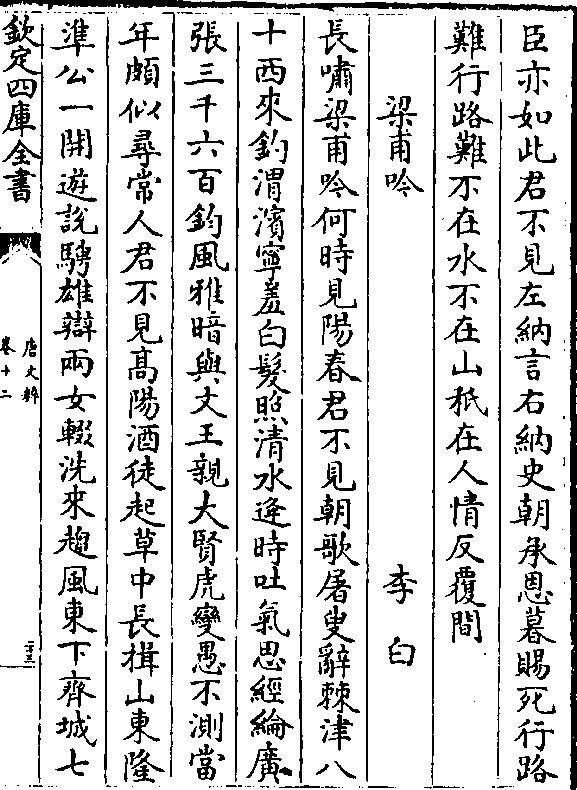 臣亦如此君不見左納言右納史朝承恩暮賜死行路
難行路難不在水不在山秖在人情反覆間
梁甫吟 李白
長嘯梁甫吟何時見陽春君不見朝歌屠叟辭棘津八
十西來釣渭濱寧羞白髮照清水逄時吐氣思經綸廣
張三千六百鈞風雅暗與文王親大賢虎變愚不測當
年頗似尋常人君不見髙陽酒徒起草中長楫山東隆
準公一開遊說騁雄辯兩女輟洗來趨風東下齊城七
欽定四庫全書
唐文粹
卷十二
二十三